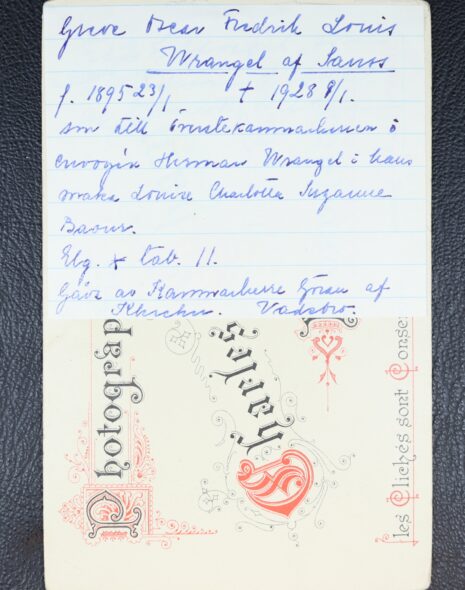 Greve Oscar Fredrik Louis
Wrangel af Sauss
f. 1895 23/1 † 1928 8/1.
son till Överstekammarherren o
envoyén Herman Wrangel i hans
maka Louise Charlotta Suzanne
Baour.
Elg. * tab. 11.
Gåva av Kammarherre Göran af
Klercker. Vadsbro.
Photograp
Charles
les Clichés sont Conser